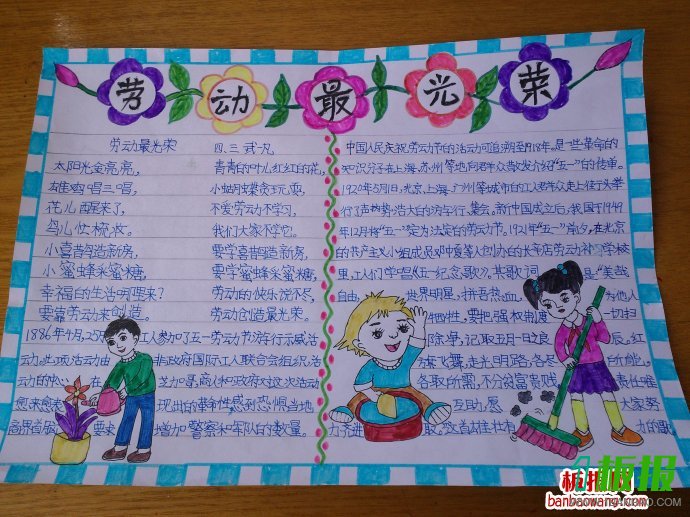 劳动最光荣
劳动最光荣 四.三 武凡
太阳光金亮亮，
雄鸡唱三唱，
花儿醒来了，
鸟儿忙梳妆。
小喜鹊造新房，
小蜜蜂采蜜糖，
幸福的生活哪里来？
要靠劳动来创造。
青青的叶儿红红的花，
小蝴蝶贪玩耍，
不爱劳动不学习，
我们大家不学它。
要学喜鹊造新房，
要学蜜蜂采蜜糖，
劳动的快乐说不尽，
劳动创造最光荣。
1886年4月，25 工人参加了五一劳动节游行示威活
动.此项活动由 非政府国际工人联合会组织.活
动的中心 芝加哥.商人和政府对这次活动
愈来愈 现出的革命性感到恐惧当地
商界首 要求 增加 警察和军队的数量。
中国人民庆祝劳动节的活动可追溯至1918年，是一些革命的
知识分子在上海、苏州等地向群众散发介绍“五一”的传单。
1920年5月1日，北京，上海、广州等城市的工人群众走上街头举
行了声势浩大的游行、集会，新中国成立后，我国于1949
年12月将“五一”定为法定的劳动节。1921年“五一”前夕，在北京
的共产主义小组成员邓中夏等人创办的长辛店劳动补习学校
里，工人们学唱《五一纪念歌》，其歌词 是“美哉
自由， 世界明星，拼吾热血， 为他人
牺牲，要把强权制度 一切扫
除净，记取五月一日之良 辰。红
旗飞舞，走光明路，各尽 所能，
各取所需，不分贫富贵贱 责任唯
互助，愿 大家努
力齐进取。
板报网
banbaowang.com
板报